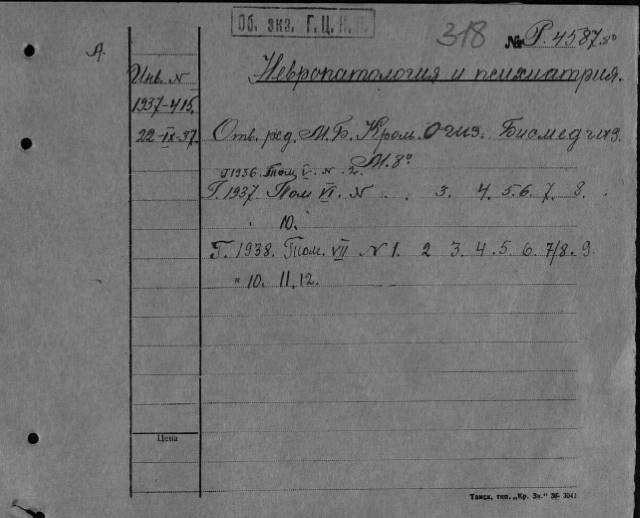 Об. экз. Г.Ц.К.П.
318 № Р.4587.8°
А.
Невропатология и психиатрия.
Инв. №
1937-415.
22-IX-37.
Отв. ред. М.Б. Кром. Огиз. Биомедгиз.
М. 8°
Г1936. Том V. N. 2.
Г. 1937. Том VI. N . . 3. 4. 5. 6. 7. 8. .
. 10.
Г. 1938. Том. VII N 1. 2 3. 4. 5. 6. 7/8. 9.
" 10. 11. 12.
Цена
Томск, тип. „Кр. Зн." Зк. 3041